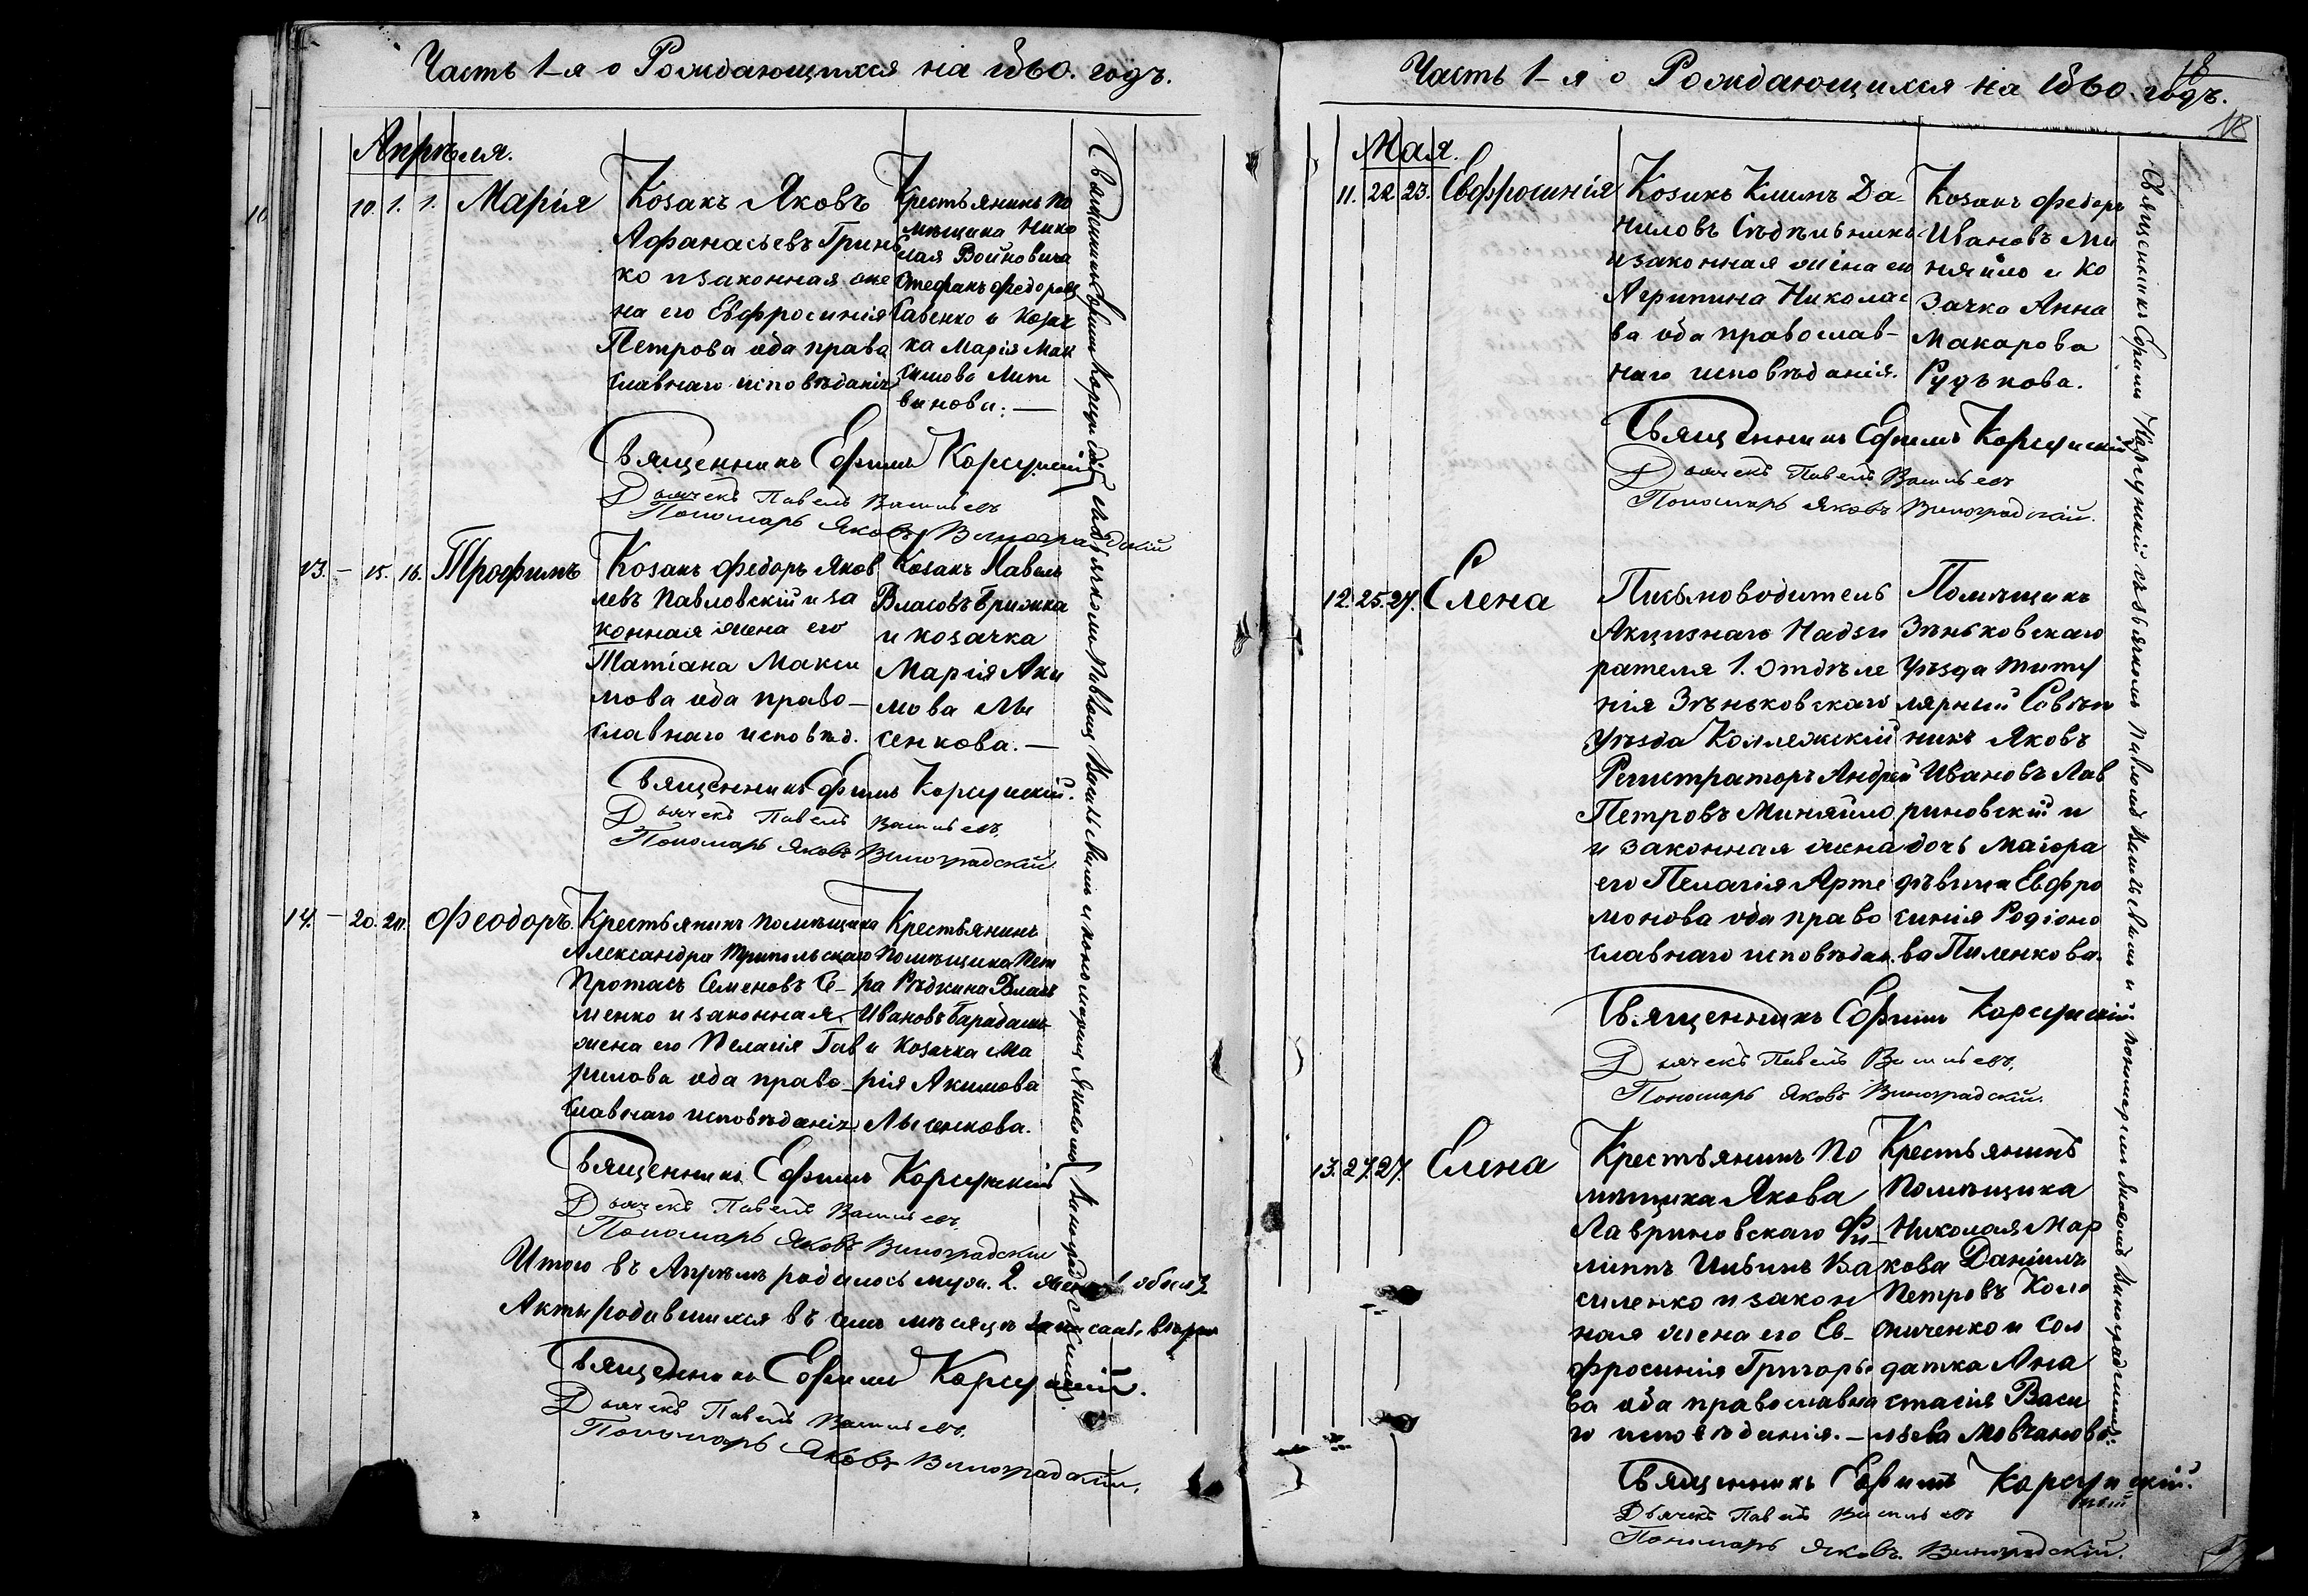 Часть 1-я о Рождающихся на 1860. годъ.
Апрѣля.
10. 1. 1. Марія
Козакъ Яковъ
Афанасьевъ Гринь
ко и законная же
на его Евфросинія
Петрова оба право
славнаго исповѣданія
Крестьянинъ по
мѣщика Нико
лая Войновича
Стефанъ Федоровъ
Савенко и козач
ка Марія Мак
симова Лит
винова. —
Священникъ Ефимъ Корсунскій
Дьячекъ Павелъ Васильевъ
Пономарь Яковъ Виноградскій
13. — 15. 16. Трофимъ
Козакъ Федоръ Яков
левъ Павловскій и за
конная жена его
Татіана Макси
мова оба право-
славнаго исповѣд.
Козакъ Павелъ
Власовъ Брижка
и козачка
Марія Аки
мова Лы
сенкова. —
Священникъ Ефимъ Корсунскій.
Дьячекъ Павелъ Васильевъ
Пономарь Яковъ Виноградскій
14. — 20. Феодоръ.
Крестьянинъ помѣщика
Александра Трипольскаго
Протасъ Семеновъ Се-
менко и законная
жена его Пелагія Гав
рилова оба право-
славнаго исповѣданія
Крестьянинъ
помѣщика Пет
ра Рѣдкина Власъ
Ивановъ
и козачка Ма
рія Акимова
Лысенкова.
Священникъ Ефимъ Корсунскій
Дьячекъ Павелъ Васильевъ
Пономарь Яковъ Виноградскій
Итого въ Апрѣлѣ родилось муж. 2. жен. 1 обоего 3.
Акты родившихся въ семъ мѣсяцѣ записаны вѣрно
Священникъ Ефимъ Корсунскій.
Дьячекъ Павелъ Васильевъ.
Пономарь Яковъ Виноградскій.
Священникъ Ефимъ Корсунскій съ дьячкомъ Павломъ Васильевымъ и пономаремъ Яковомъ Виноградскимъ.
Часть 1-я о Рождающихся на 1860. годъ.
18
18
Мая.
11. 22. 23. Евфросинія
Козакъ Климъ Да-
ниловъ Сѣдѣльникъ
и законная жена его
Агрипина Николае
ва оба православ-
наго исповѣданія.
Козакъ Федоръ
Ивановъ Ми
няйло и ко
зачка Анна
Макарова
Рудькова.
Священникъ Ефимъ Корсунскій
Дьячекъ Павелъ Васильевъ
Пономарь Яковъ Виноградскій.
12. 25. 27. Елена
Письмоводитель
Акцизнаго Надзи
рателя 1. Отдѣле
нія Зѣньковскаго
Уѣзда Коллежскій
Регистраторъ Андрей
Петровъ Миняйло
и законная жена
его Пелагія Арте
монова оба право
славнаго исповѣдан.
Помѣщикъ
Зѣньковскаго
Уѣзда титу
лярный Совѣт
никъ Яковъ
Ивановъ Лав
риновскій и
дочь Маіора
дѣвица Евфро
синія Родіоно
ва Пиленкова.
Священникъ Ефимъ Корсунскій
Дьячекъ Павелъ Васильевъ.
Пономарь Яковъ Виноградскій.
13. 27. 27. Елена
Крестьянинъ по
мѣщика Якова
Лавриновскаго Фи-
липпъ Ва
силенко и закон
ная жена его Ев-
фросинія Григорье
ва оба православна
го исповѣданія. —
Крестьянинъ
помѣщика
Николая Мар
кова Даніилъ
Петровъ Коло
ниченко и сол
датка Ана
стасія Васи
льева Мовчанова.
Священникъ Ефимъ Корсунскій.
Дьячекъ Павелъ Васильевъ
Пономарь Яковъ Виноградскій.
Священникъ Ефимъ Корсунскій съ дьячкомъ Павломъ Васильевымъ и пономаремъ Яковомъ Виноградскимъ.